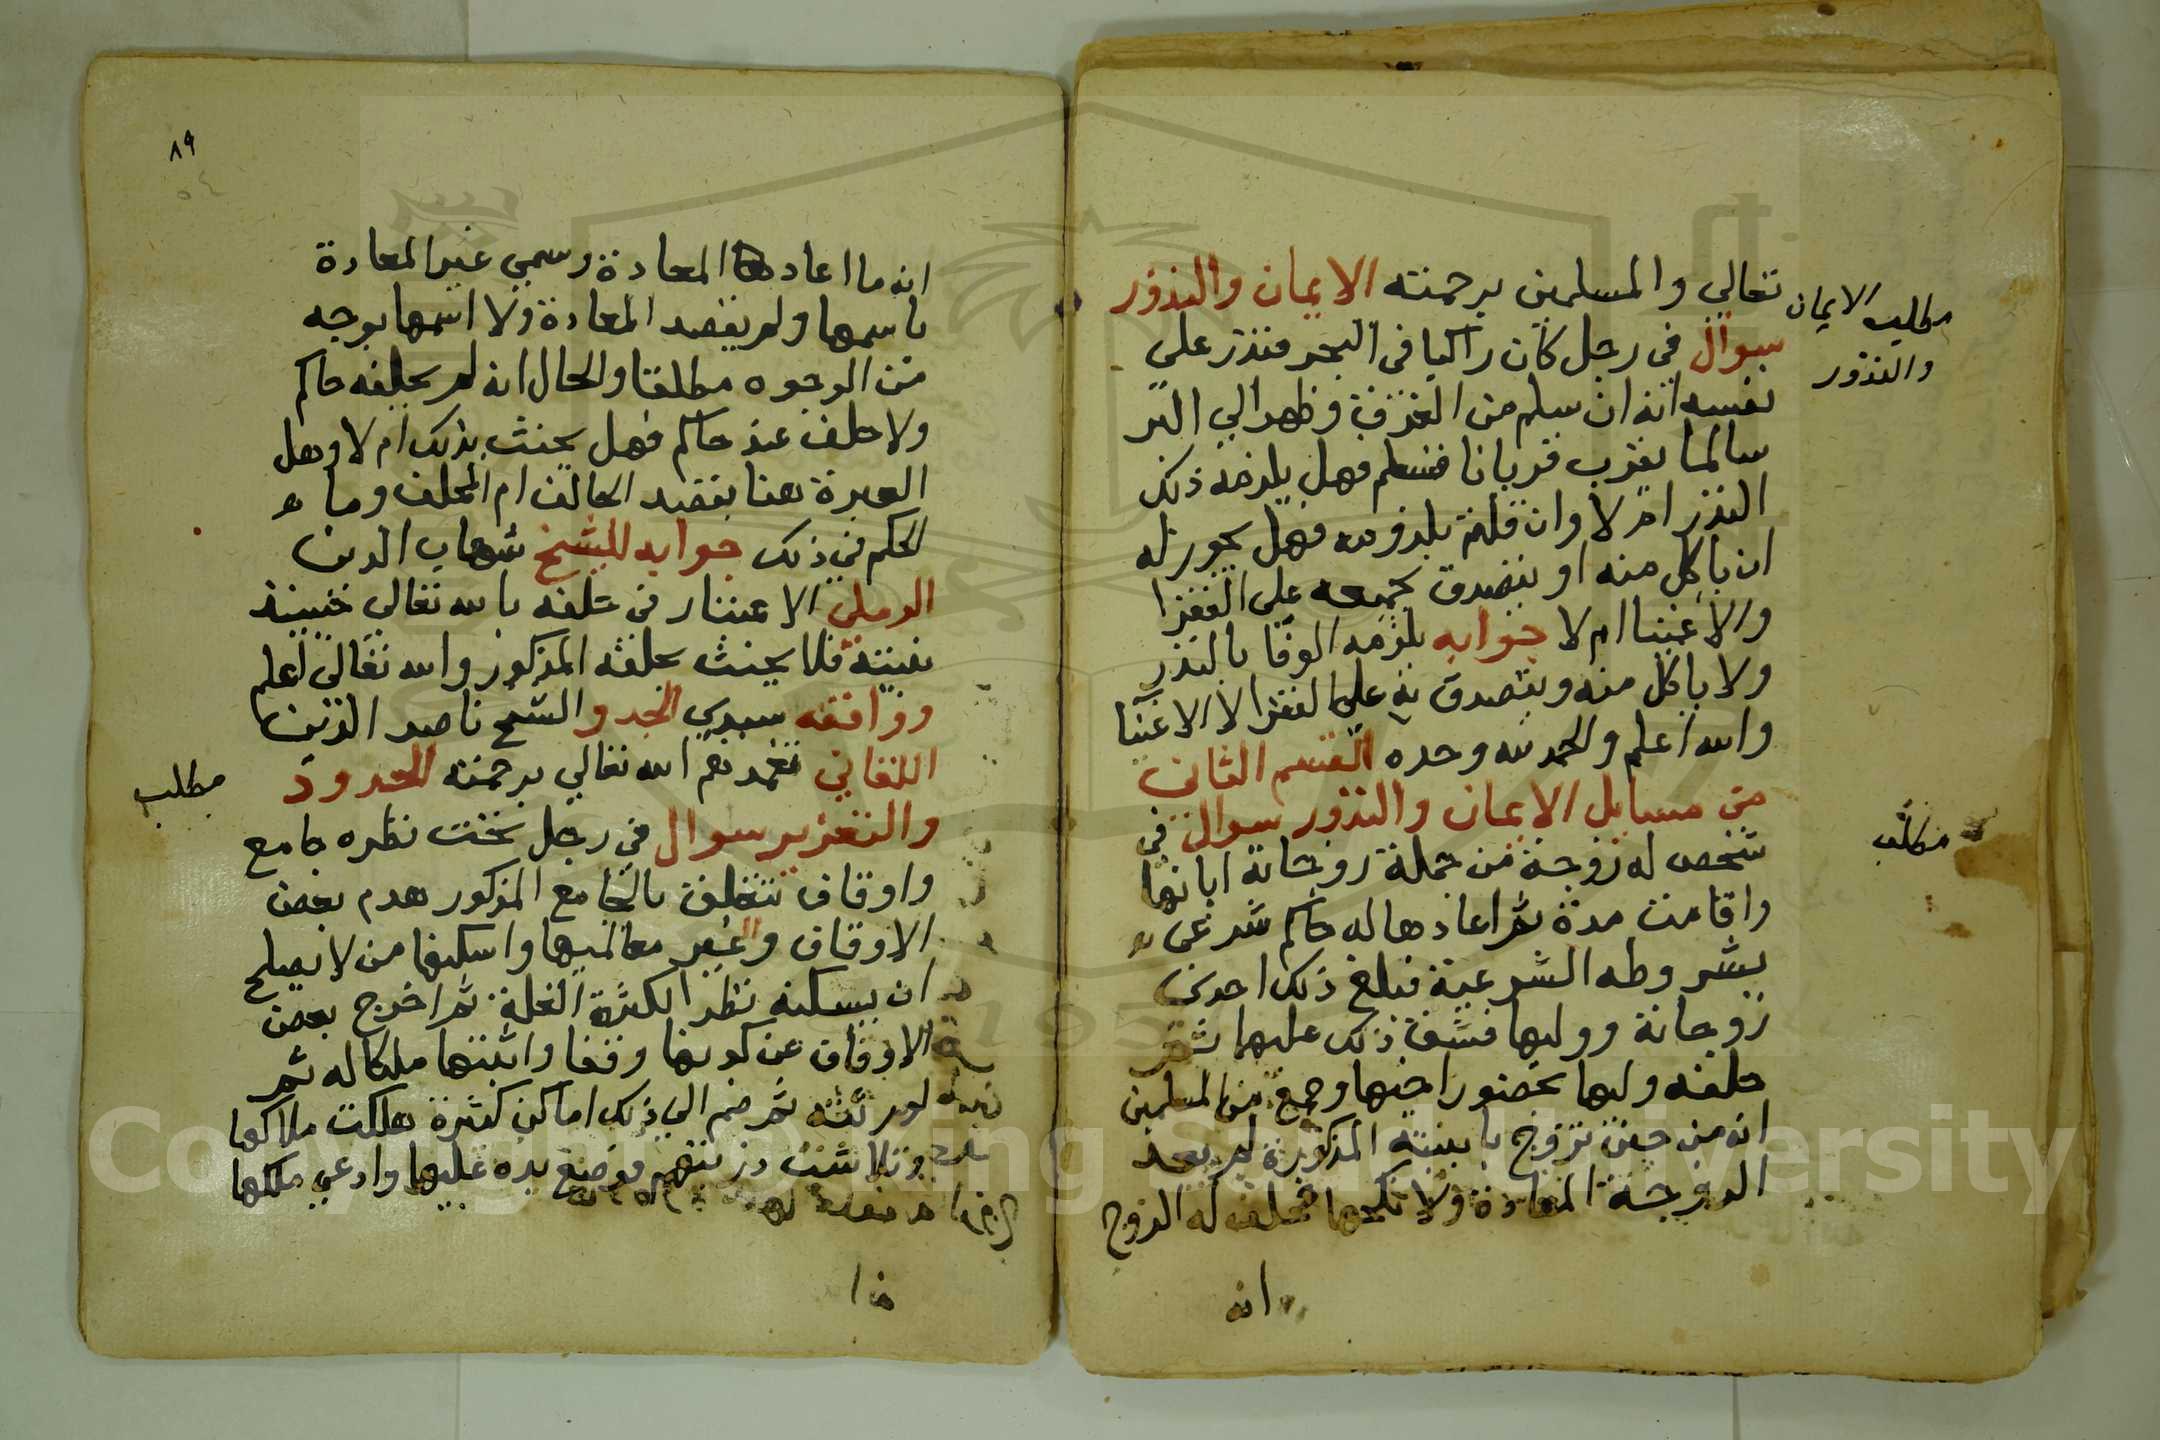 تعالي والمسلمين برحمته الايمان والنذور
مطلب الايمان
والنذور
سوال في رجل كان راكبا في البحر فنذر علي
نفسه انه ان سلم من الغرق وظهر الي البر
سالما يقرب قربانا فسلم فهل يلزمه ذلك
النذر ام لا وان قلتم بلزومه فهل يجوز له
ان ياكل منه او يتصدق بجميعه علي الفقرا
والاغنيا ام لا جوابه يلزمه الوفا بالنذر
ولا ياكل منه ويتصدق به علي الفقرا لا الاغنيا
والله اعلم والحمد لله وحده القسم الثاني
من مسايل الايمان والنذور سوال في
مطلب
شخص له زوجة من جملة زوجاته ابانها
واقامت مدة ثم اعادها له حاكم شرعي
بشروطه الشرعية فبلغ ذلك احدي
زوجاته ووليها فشق ذلك عليهما ثم
حلفه وليها بحضور اختها وجمع من المسلمين
انه من حين تزوج بابنته المذكورة لم يعد
الزوجة المعادة ولا نكحها فحلف له الزوج
انه
٨٩
انه ما اعادها المعادة وسمي غير المعادة
باسمها ولم يقصد المعادة ولا اسمها بوجه
من الوجوه مطلقا والحال انه لم يحلفه حاكم
ولا حلف عند حاكم فهل يحنث بذلك ام لا وهل
العبرة هنا بقصد الحالف ام المحلف وما
الحكم في ذلك جوابه للشيخ شهاب الدين
الرملي الاعتبار في حلفه بالله تعالي
بنيته فلا يحنث بحلفه المذكور والله تعالي اعلم
ووافقه سيدي الجد والشيخ ناصر الدين
اللقاني تغمدهم الله تعالي برحمته الحدود
مطلب
والتعزير سوال في رجل تحت نظره جامع
واوقاف تتعلق بالجامع المذكور هدم بعض
الاوقاف وغير معالمها واسكنها من لا يصلح
ان يسكنه نظرا لكثرة الغلة ثم اخرج بعض
الاوقاف عن كونها وقفا واثبتها ملكا له ثم
لورثته ثم ضم الي ذلك اماكن كثيرة هلكت ملاكها
وتلاشت ذريتهم فوضع يده عليها وادعي ملكها